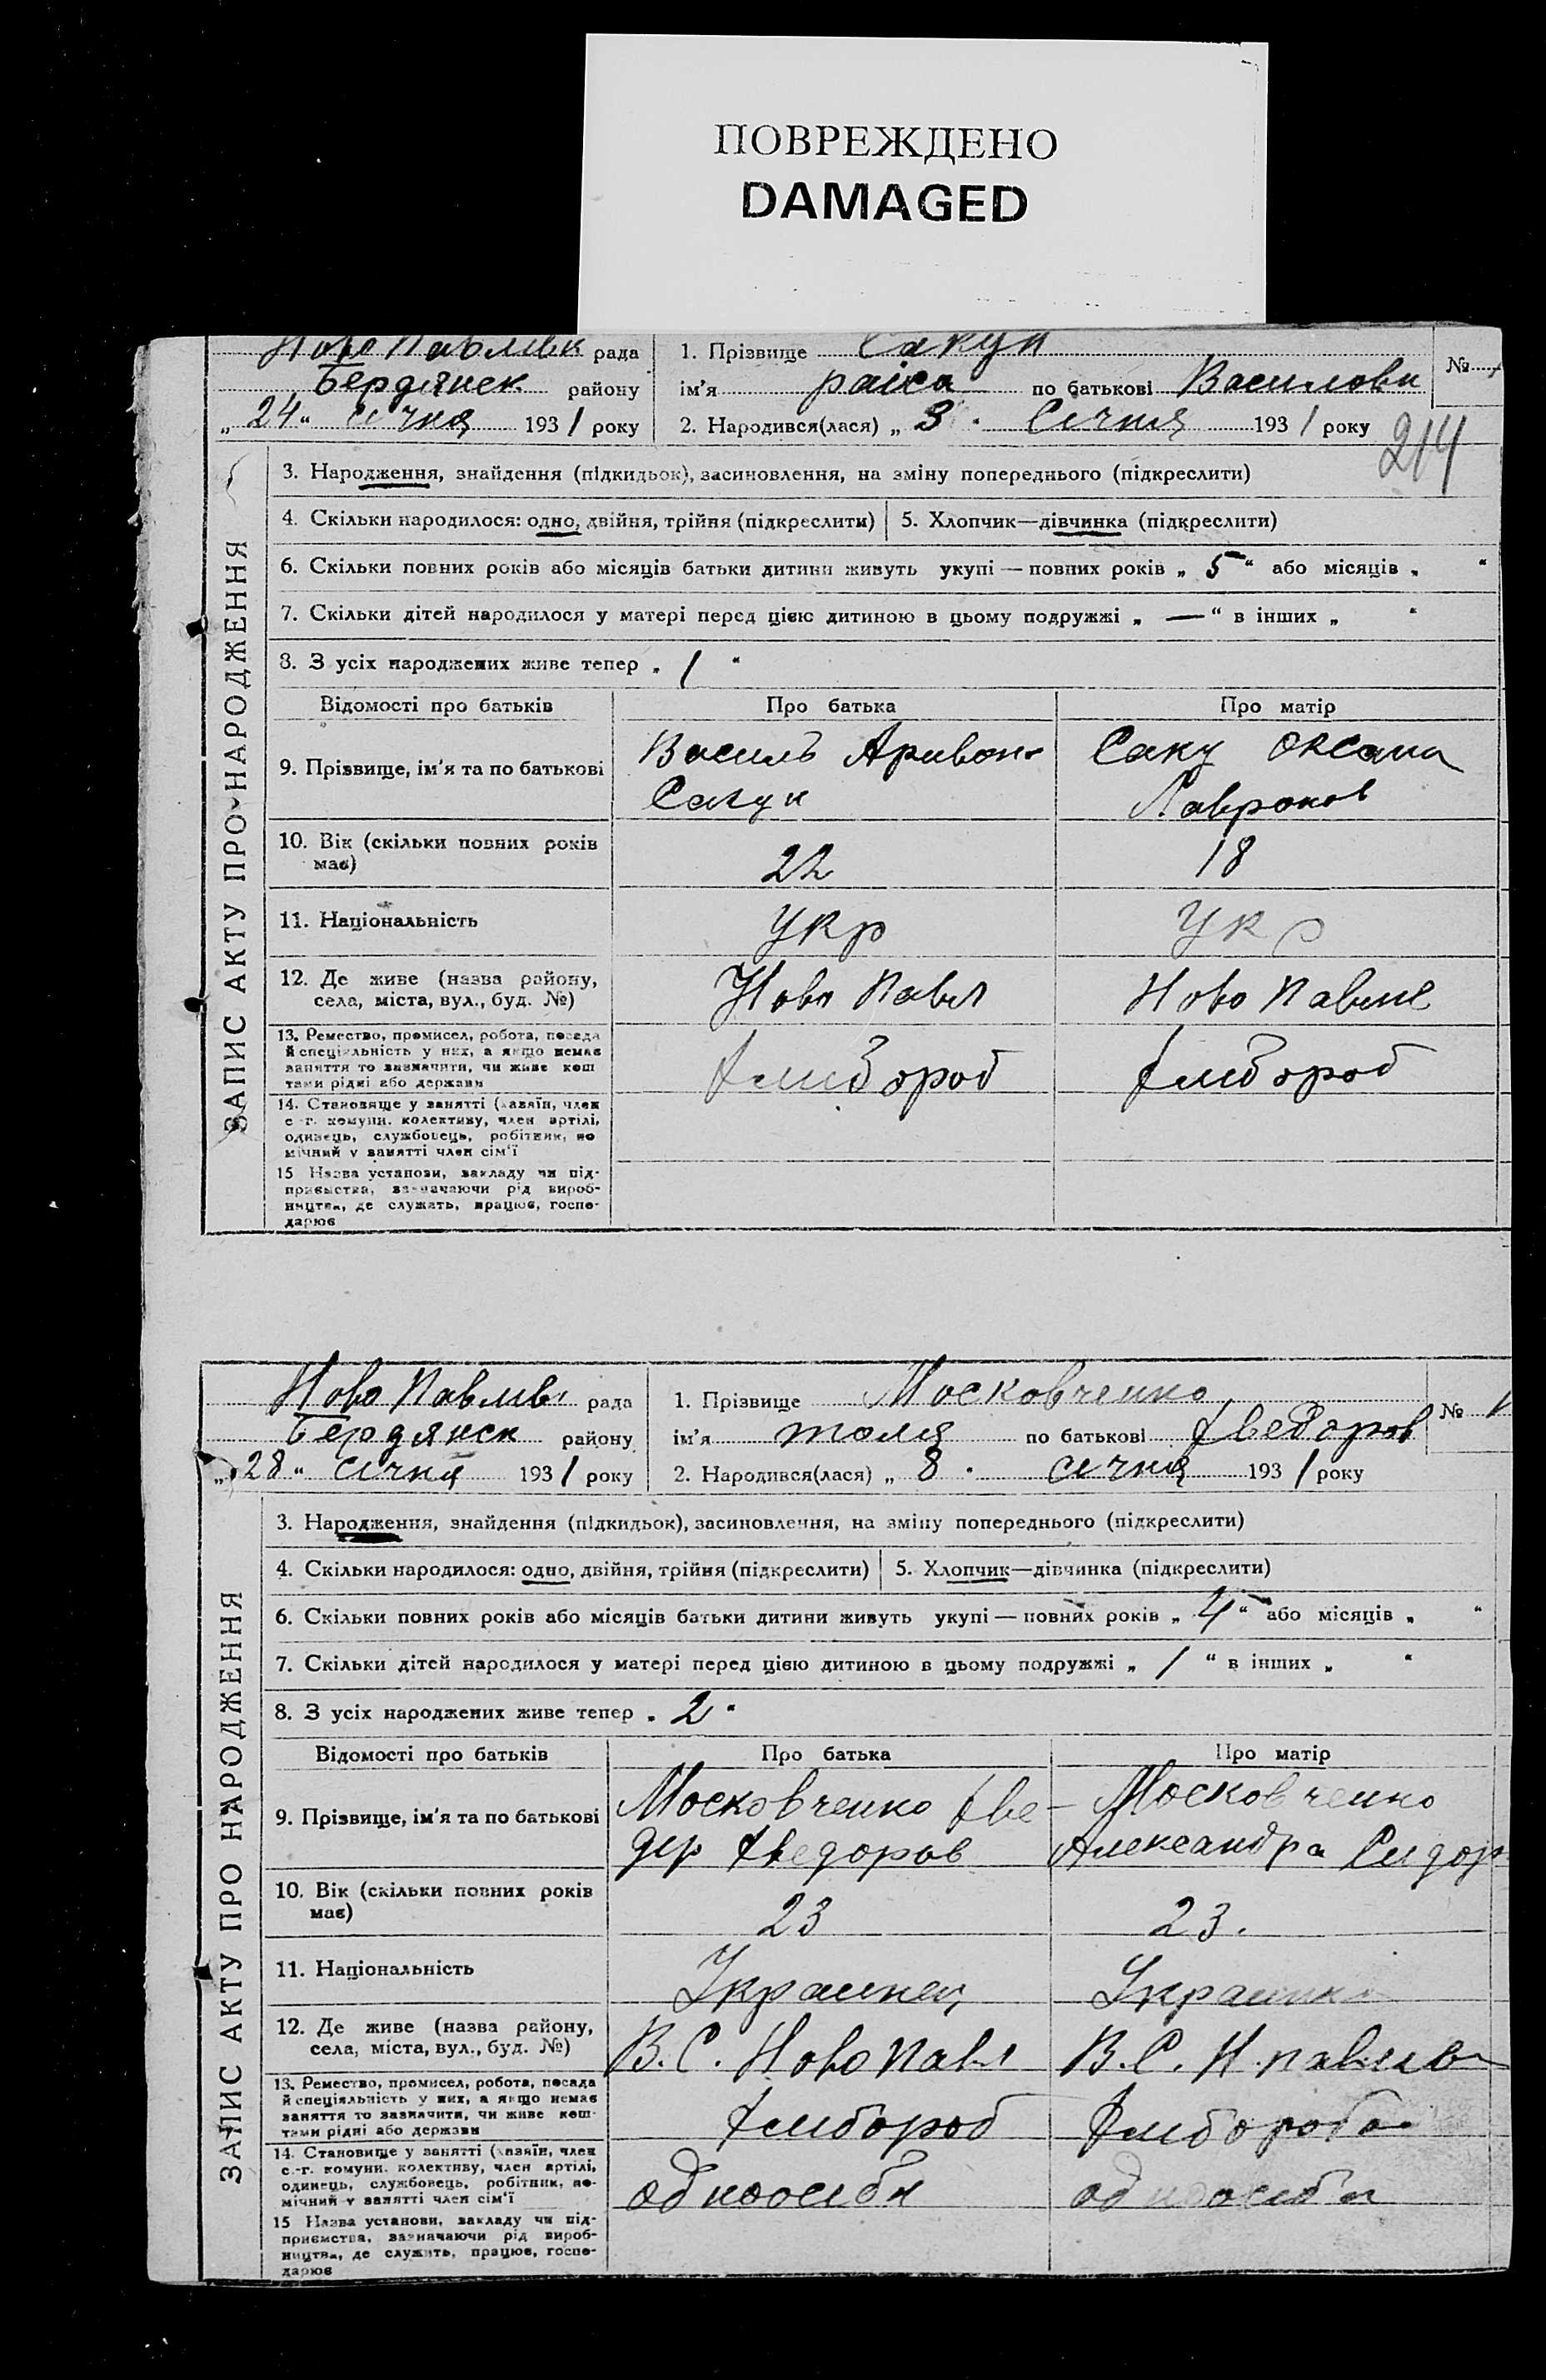 ПОВРЕЖДЕНО
DAMAGED
Ново Павлівк рада
Бердянск району
„ 24 “ січня 1931 року
1. Прізвище Сакун
ім'я раіса по батькові Василовн
2. Народився(лася) „ 3 “ Січня 1931 року
№
214
ЗАПИС АКТУ ПРО НАРОДЖЕННЯ
3. Народження, знайдення (підкидьок), засиновлення, на зміну попереднього (підкреслити)
4. Скільки народилося: одно, двійня, трійня (підкреслити)
5. Хлопчик—дівчинка (підкреслити)
6. Скільки повних років або місяців батьки дитини живуть укупі — повних років „ 5 “ або місяців „ “
7. Скільки дітей народилося у матері перед цією дитиною в цьому подружжі „ — “ в інших „ “
8. З усіх народжених живе тепер „ 1 “
Відомості про батьків
Про батька
Про матір
9. Прізвище, ім'я та по батькові
Василь
Сакун
Саку Оксана
Лавронов
10. Вік (скільки повних років
має)
22
18
11. Національність
Укр
Укр
12. Де живе (назва району,
села, міста, вул., буд. №)
Ново Павл
Ново Павлив
13. Ремество, промисел, робота, посада
й спеціяльність у них, а якщо немає
заняття то зазначити, чи живе кош
тами рідні або держави
хлибороб
хлибороб
14. Становище у занятті (хазяїн, член
с.-г. комуни, колективу, член артілі,
одинець, службовець, робітник, по
мічний у занятті член сім'ї
15 Назва установи, закладу чи під-
приємства, зазначаючи рід вироб-
ництва, де служить, працює, госпо-
дарює
Ново Павлівк рада
Бердянск району
„ 28 “ січня 1931 року
1. Прізвище Московченко
ім'я толя по батькові Хведоров
2. Народився(лася) „ 8 “ січня 1931 року
№
ЗАПИС АКТУ ПРО НАРОДЖЕННЯ
3. Народження, знайдення (підкидьок), засиновлення, на зміну попереднього (підкреслити)
4. Скільки народилося: одно, двійня, трійня (підкреслити)
5. Хлопчик—дівчинка (підкреслити)
6. Скільки повних років або місяців батьки дитини живуть укупі — повних років „ 4 “ або місяців „ “
7. Скільки дітей народилося у матері перед цією дитиною в цьому подружжі „ 1 “ в інших „ “
8. З усіх народжених живе тепер „ 2 “
Відомості про батьків
Про батька
Про матір
9. Прізвище, ім'я та по батькові
Московченко Хве-
дір Хведоров
Московченко
Александра Сидор
10. Вік (скільки повних років
має)
23
23.
11. Національність
Украинец
Украинка
12. Де живе (назва району,
села, міста, вул., буд. №)
В. С. Ново Павл
В. С. Н. павлив
13. Ремество, промисел, робота, посада
й спеціяльність у них, а якщо немає
заняття то зазначити, чи живе кош-
тами рідні або держави
Хлибороб
Хлибороба
14. Становище у занятті (хазяїн, член
с.-г. комуни, колективу, член артілі,
одинець, службовець, робітник, по-
мічний у занятті член сім'ї
одноосібн
одноосібн
15 Назва установи, закладу чи під-
приємства, зазначаючи рід вироб-
ництва, де служить, працює, госпо-
дарює